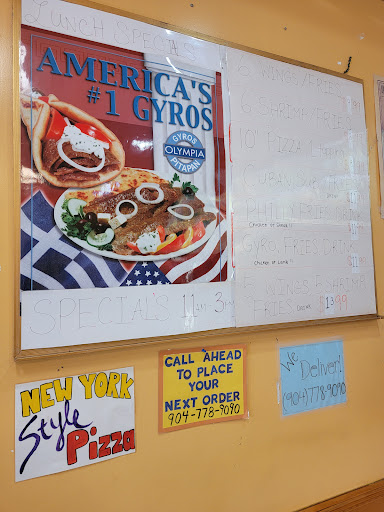 LUNCH SPECIALS
AMERICA'S
#1 GYROS
GYROS
OLYMPIA
PITA PAN
SPECIAL'S 11AM 3
6 WINGS/FRIES
6 SHRIMP FRIES
10" PIZZA 1
PHILLY FRIES DRINK
Choice of
GYRO FRIES DRINK
Choice of Lamb
SHRIMP
FRIES $13.99
NEW YORK
Style
Pizza
CALL AHEAD
TO PLACE
YOUR
NEXT ORDER
904-778-9090
We
Deliver!
(904)778-9090